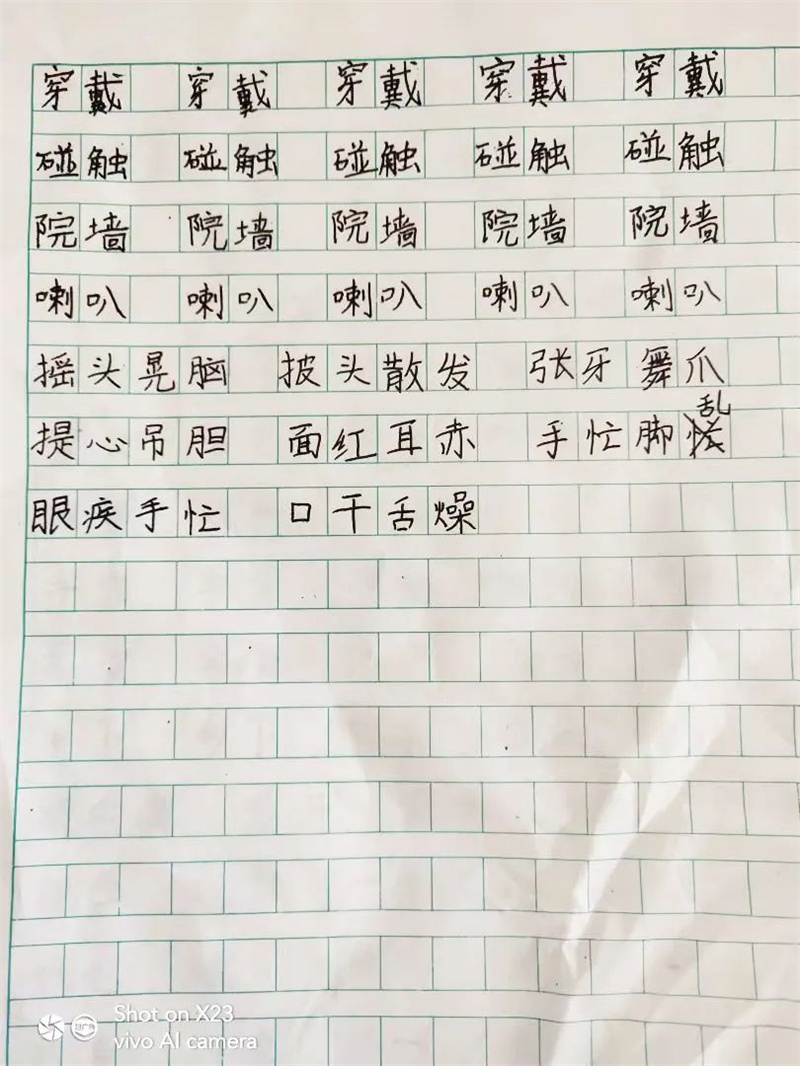 穿戴 穿戴 穿戴 穿戴 穿戴
碰触 碰触 碰触 碰触 碰触
院墙 院墙 院墙 院墙 院墙
喇叭 喇叭 喇叭 喇叭 喇叭
摇头晃脑 披头散发 张牙舞爪
提心吊胆 面红耳赤 手忙脚乱
眼疾手忙 口干舌燥
Shot on X23
vivo AI camera